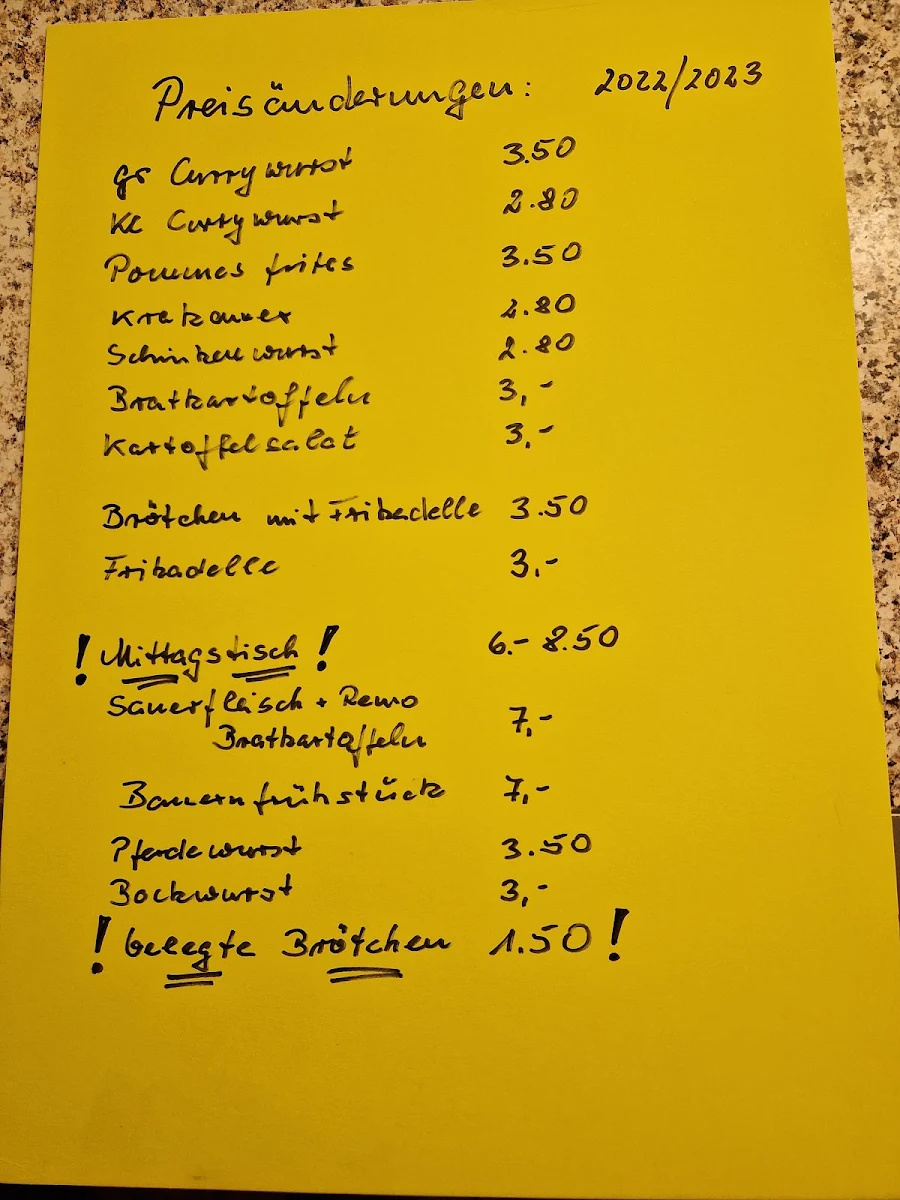 Preisänderungen: 2022/2023
gr Currywurst 3.50
kl Currywurst 2.80
Pommes frites 3.50
Krakauer 2.80
Schinkenwurst 2.80
Bratkartoffeln 3,-
Kartoffelsalat 3,-
Brötchen mit Frikadelle 3.50
Frikadelle 3,-
! Mittagstisch ! 6.- 8.50
Sauerfleisch + Remo
Bratkartoffeln 7,-
Bauernfrühstück 7,-
Pferdewurst 3.50
Bockwurst 3,-
! belegte Brötchen 1.50 !